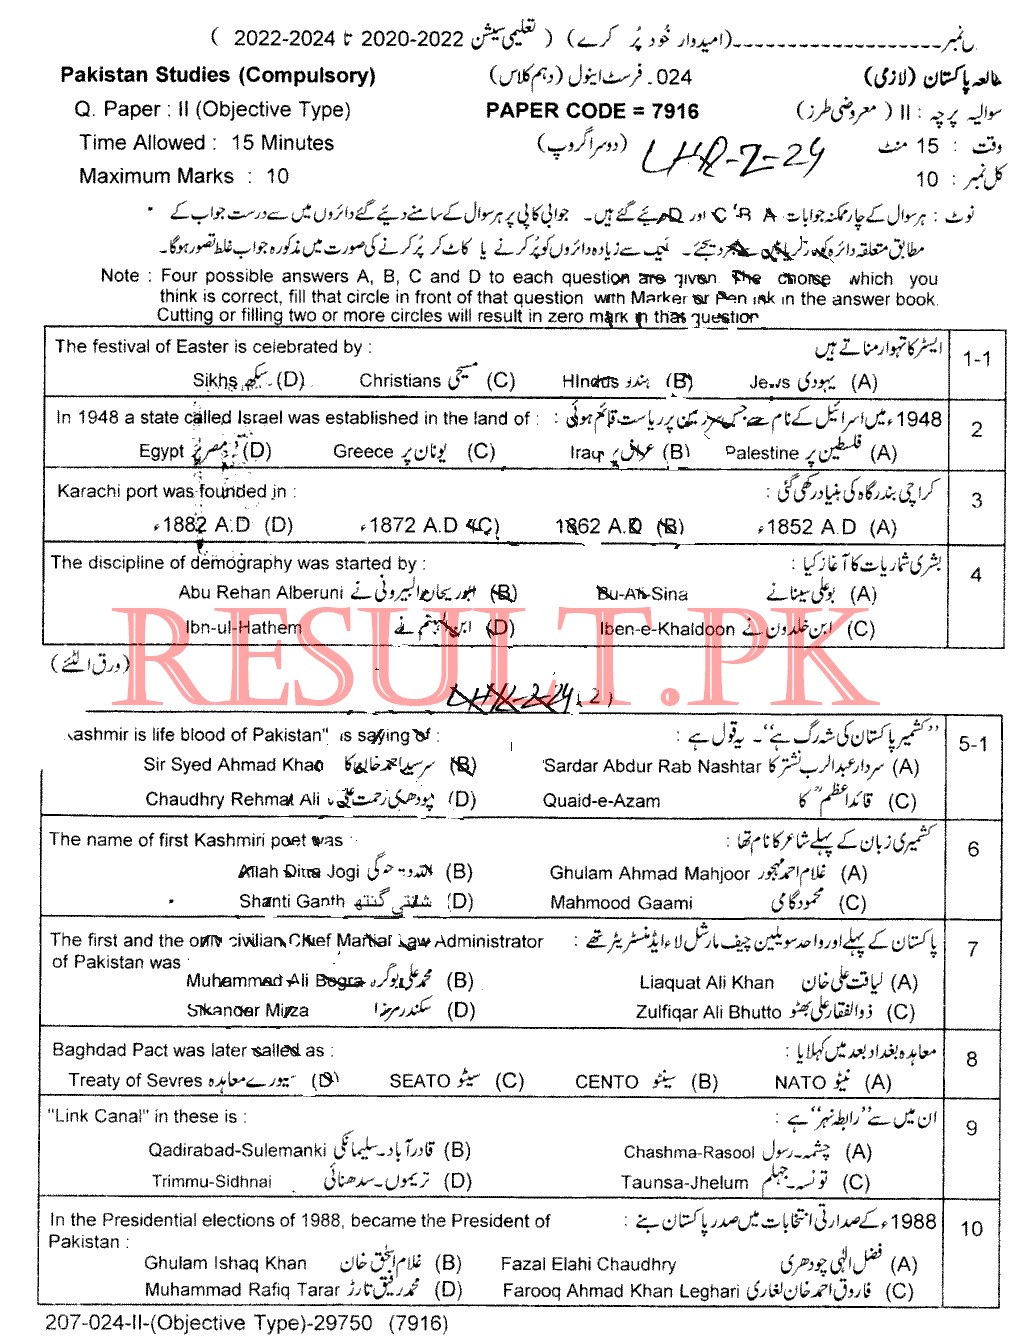 نمبر-------------------(امیدوار خود پُر کرے) ( تعلیمی سیشن 2022-2020 تا 2024-2022 )
Pakistan Studies (Compulsory) 024۔ فرسٹ اینول (دہم کلاس) مطالعہ پاکستان (لازمی)
Q. Paper : II (Objective Type) PAPER CODE = 7916 سوالیہ پرچہ : II ( معروضی طرز)
Time Allowed : 15 Minutes (دوسرا گروپ) LHR-2-24 وقت : 15 منٹ
Maximum Marks : 10 کل نمبر : 10
نوٹ : ہر سوال کے چار ممکنہ جوابات C ‘B A اور D دیئے گئے ہیں۔ جوابی کاپی پر ہر سوال کے سامنے دیئے گئے دائروں میں سے درست جواب کے
مطابق متعلقہ دائرہ کو مارکر یا پین سے بھر دیجئے۔ ایک سے زیادہ دائروں کو پُر کرنے یا کاٹ کر پُر کرنے کی صورت میں مذکورہ جواب غلط تصور ہوگا۔
Note : Four possible answers A, B, C and D to each question are given. The choice which you
think is correct, fill that circle in front of that question with Marker or Pen ink in the answer book.
Cutting or filling two or more circles will result in zero mark in that question
The festival of Easter is celebrated by : ایسٹر کا تہوار مناتے ہیں 1-1
Sikhs سکھ (D) Christians مسیحی (C) Hindus ہندو (B) Jews یہودی (A)
In 1948 a state called Israel was established in the land of : 1948ء میں اسرائیل کے نام سے جس سرزمین پر ریاست قائم ہوئی : 2
Egypt مصر پر (D) Greece یونان پر (C) Iraq عراق پر (B) Palestine فلسطین پر (A)
Karachi port was founded in : کراچی بندرگاہ کی بنیاد رکھی گئی : 3
1882 A.D ء (D) 1872 A.D ء (C) 1862 A.D (B) 1852 A.D ء (A)
The discipline of demography was started by : بشری شماریات کا آغاز کیا : 4
Abu Rehan Alberuni ابوریحان البیرونی نے (B) Bu-Ali-Sina بوعلی سینا نے (A)
Ibn-ul-Hathem ابن الہیثم نے (D) Iben-e-Khaldoon ابن خلدون نے (C)
(ورق الٹئے)
RESULT.PK
LHR-2-24 (2)
Kashmir is life blood of Pakistan" is saying of : ’’کشمیر پاکستان کی شہ رگ ہے‘‘۔ یہ قول ہے : 5-1
Sir Syed Ahmad Khan سرسید احمد خان کا (B) Sardar Abdur Rab Nashtar سردار عبدالرب نشتر کا (A)
Chaudhry Rehmat Ali چودھری رحمت علی کا (D) Quaid-e-Azam قائداعظمؒ کا (C)
The name of first Kashmiri poet was : کشمیری زبان کے پہلے شاعر کا نام تھا : 6
Allah Ditta Jogi اللہ دتہ جوگی (B) Ghulam Ahmad Mahjoor غلام احمد مہجور (A)
Shanti Ganth شانتی گنتھ (D) Mahmood Gaami محمود گامی (C)
The first and the only civilian Chief Martial Law Administrator پاکستان کے پہلے اور واحد سویلین چیف مارشل لاء ایڈمنسٹریٹر تھے : 7
of Pakistan was
Muhammad Ali Bogra محمد علی بوگرہ (B) Liaquat Ali Khan لیاقت علی خان (A)
Sikandar Mirza سکندر مرزا (D) Zulfiqar Ali Bhutto ذوالفقار علی بھٹو (C)
Baghdad Pact was later called as : معاہدہ بغداد بعد میں کہلایا : 8
Treaty of Sevres سیورے معاہدہ (D) SEATO سیٹو (C) CENTO سینٹو (B) NATO نیٹو (A)
"Link Canal" in these is : ان میں سے ’’رابطہ نہر‘‘ ہے : 9
Qadirabad-Sulemanki قادرآباد۔سلیمانکی (B) Chashma-Rasool چشمہ۔رسول (A)
Trimmu-Sidhnai تریموں۔سدھنائی (D) Taunsa-Jhelum تونسہ۔جہلم (C)
In the Presidential elections of 1988, became the President of 1988ء کے صدارتی انتخابات میں صدر پاکستان بنے : 10
Pakistan :
Ghulam Ishaq Khan غلام اسحٰق خان (B) Fazal Elahi Chaudhry فضل الٰہی چودھری (A)
Muhammad Rafiq Tarar محمد رفیق تارڑ (D) Farooq Ahmad Khan Leghari فاروق احمد خان لغاری (C)
207-024-II-(Objective Type)-29750 (7916)